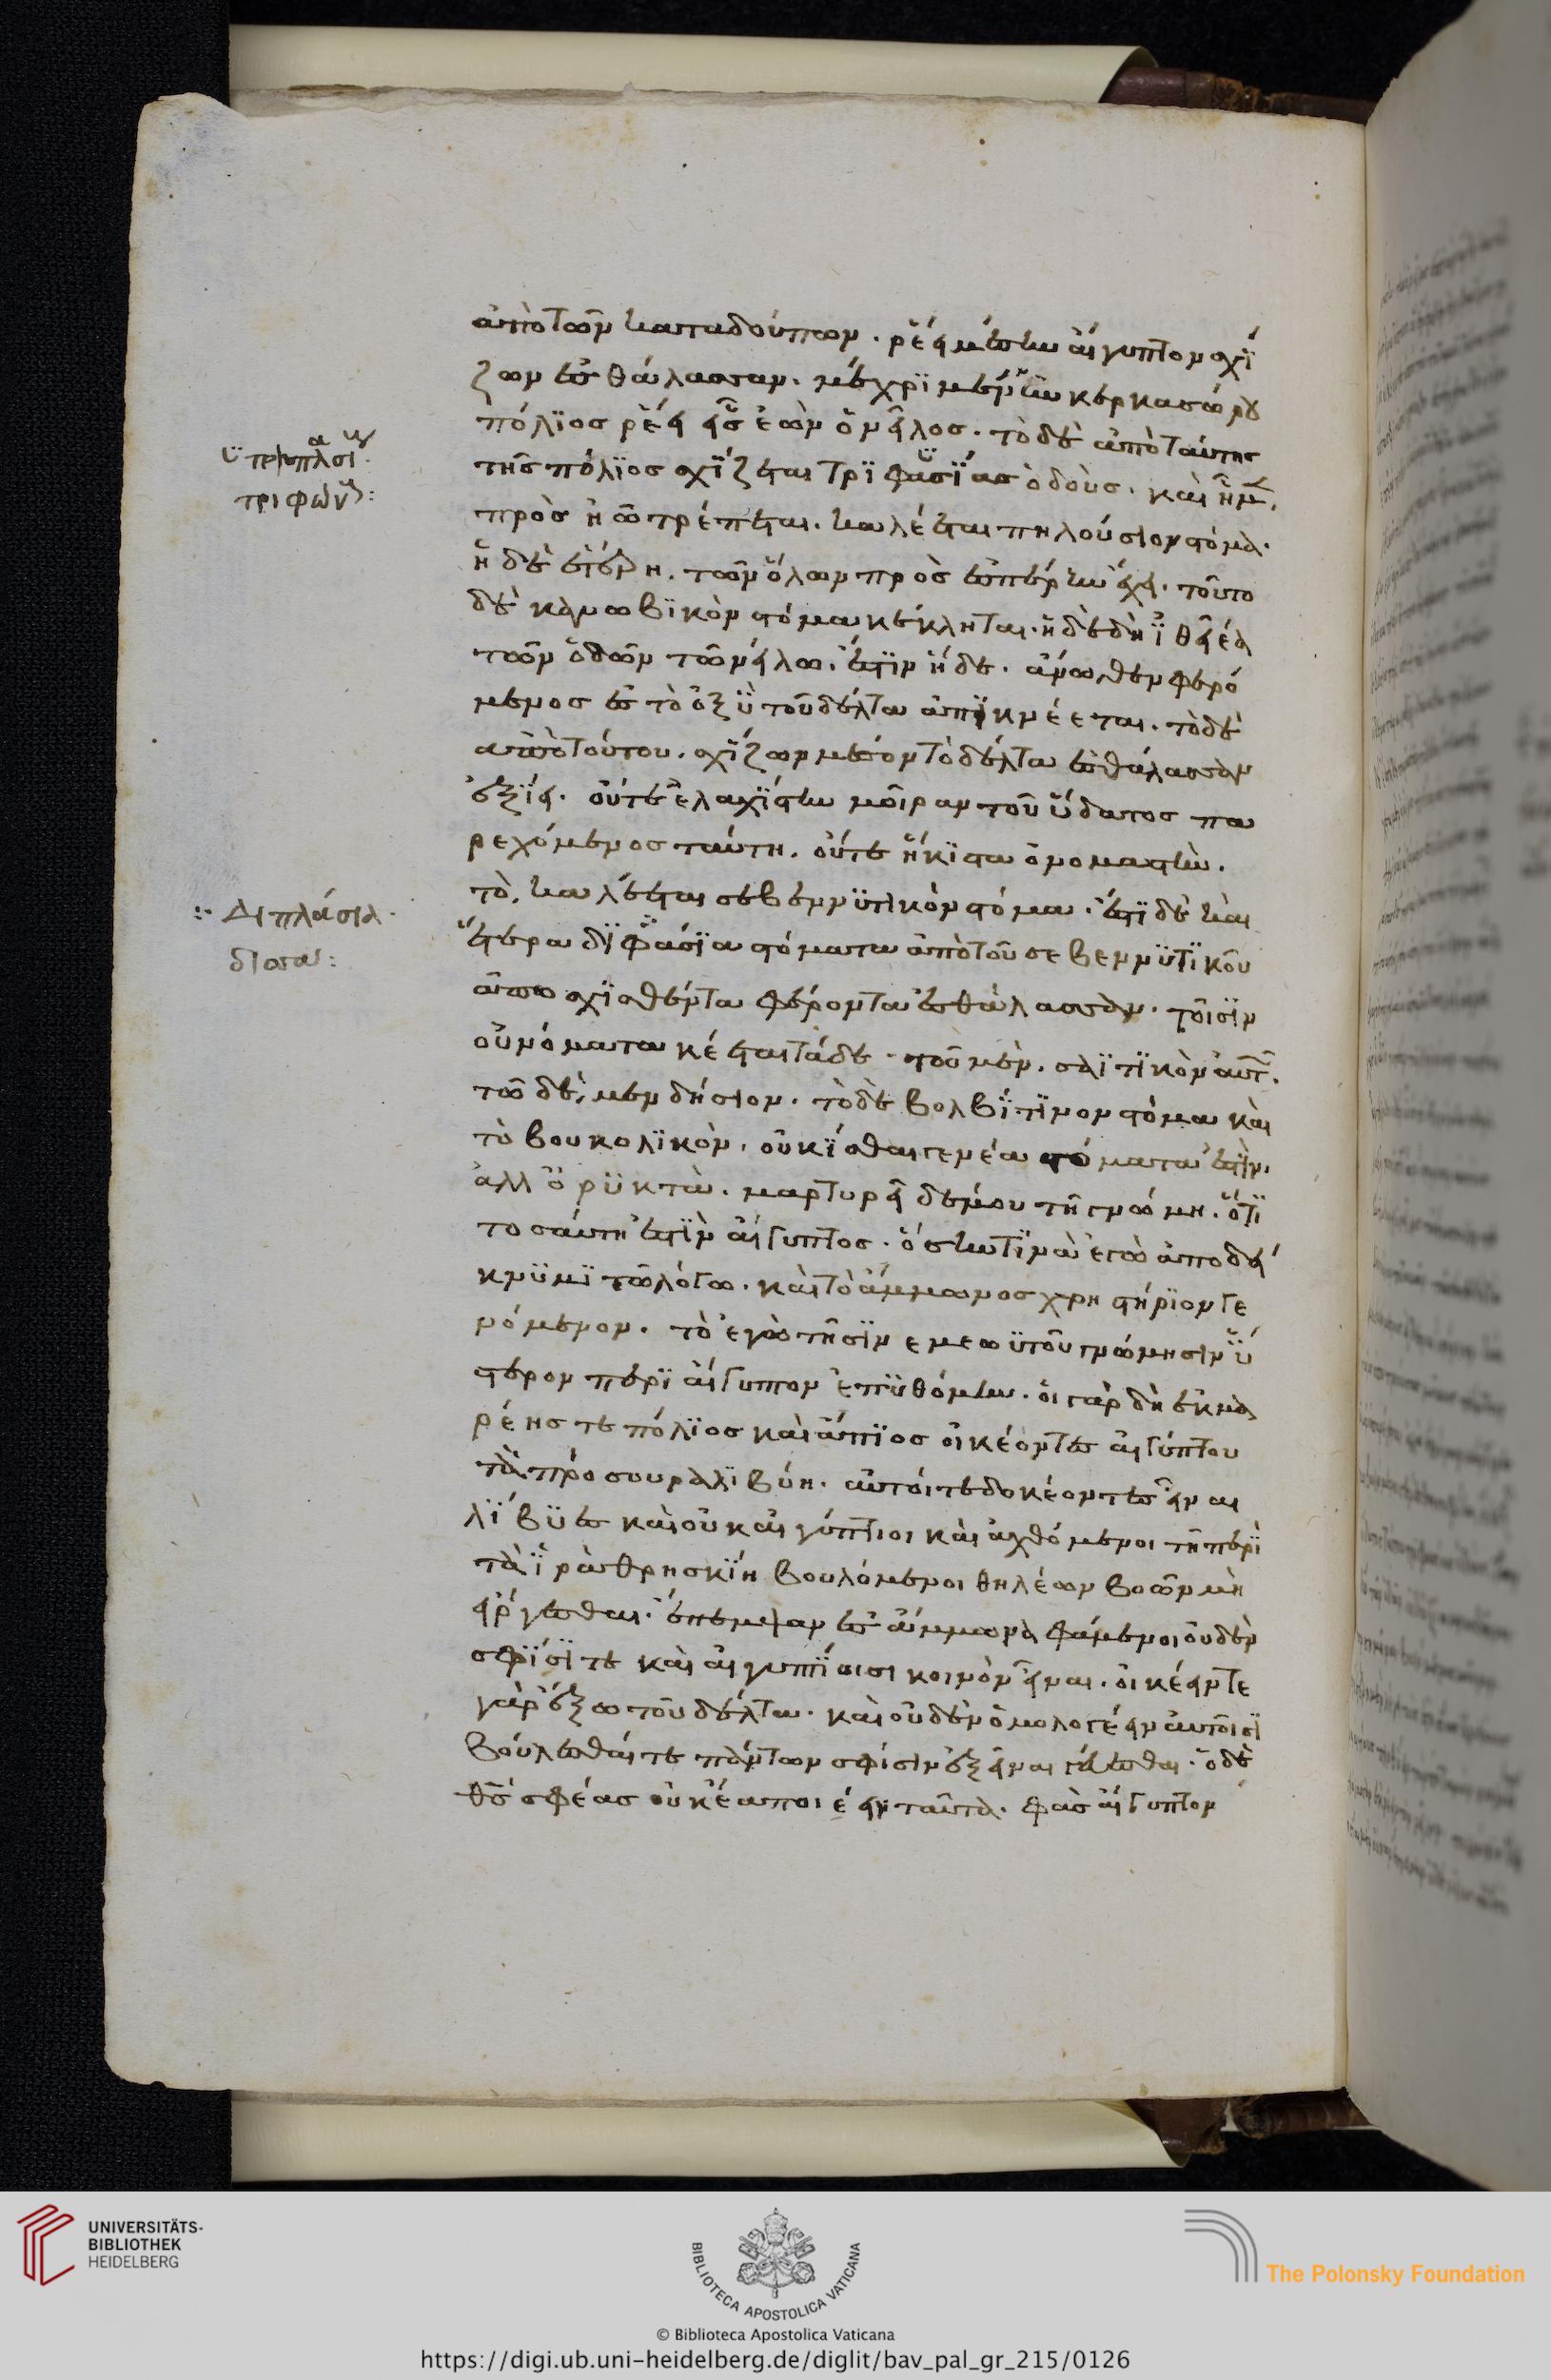 ἀπὸ τῶν καταδούπων. ῥέει μέσην αἴγυπτον σχί
ζων ἐς θάλασσαν. μέχρι μέν νυν κερκασώρου
πόλιος ῥέει εἷς ἐὼν ὁ νεῖλος. τὸ δὲ ἀπὸ ταύτης
τῆς πόλιος σχίζεται τριφασίας ὁδούς. καὶ ἡ μὲν
πρὸς ἠῶ τρέπεται. καλέεται πηλούσιον στόμα.
ἡ δὲ ἑτέρη. τῶν ὁδῶν πρὸς ἑσπέρην ἔχει. τοῦτο
δὲ κανωβικὸν στόμα κέκληται. ἡ δὲ δὴ ἰθεῖα
τῶν ὁδῶν τῶ νείλω. ἐστὶν ἥδε. ἄνωθεν φερό
μενος ἐς τὸ ὀξὺ τοῦ δέλτα ἀπικνέεται. τὸ δὲ
ἀπὸ τούτου. σχίζων μέσον τὸ δέλτα ἐς θάλασσαν
ἐξίει. οὔτε ἐλαχίστην μοῖραν τοῦ ὕδατος πα
ρεχόμενος ταύτη. οὔτε ἥκιστα ὀνομαστήν.
τὸ, καλέεται σεβεννυτικὸν στόμα. ἔστι δὲ καὶ
ἕτερα διφάσια στόματα ἀπὸ τοῦ σεβεννυτικοῦ
ἀποσχισθέντα φέροντα ἐς θάλασσαν. τοῖσιν
οὐνόματα κέεται τάδε. τῶ μὲν. σαϊτικὸν αὐτῶν.
τῶ δὲ, μενδήσιον. τὸ δὲ βολβίτινον στόμα καὶ
τὸ βουκολικὸν. οὐκ ἰθαγενέα στόματά ἐστιν.
ἀλλ' ὀρυκτά. μαρτυρεῖ δέ μου τῆ γνώμη. ὅτι
τοσαύτη ἐστὶν αἴγυπτος. ὅσην τινὰ ἐγὼ ἀποδεί
κνυμι τῶ λόγω. καὶ τὸ ἄμμωνος χρηστήριον γε
νόμενον. τὸ ἐγὼ τῆσιν ἐμεωυτοῦ γνώμησιν ὕ
στερον περὶ αἴγυπτον ἐπυθόμην. οἱ γὰρ δὴ ἐκ μα
ρέης τε πόλιος καὶ ἄπιος οἰκέοντες αἰγύπτου
τὰ πρόσουρα λιβύη. αὐτοί τε δοκέοντες εἶναι
λίβυες καὶ οὐκ αἰγύπτιοι καὶ ἀχθόμενοι τῆ περὶ
τὰ ἱρὰ θρησκίη βουλόμενοι θηλέων βοῶν μὴ
ἔργεσθαι. ἔπεμψαν ἐς ἄμμωνα φάμενοι οὐδὲν
σφίσι τε καὶ αἰγυπτίοισι κοινὸν εἶναι. οἰκέειν τε
γὰρ ἔξω τοῦ δέλτα. καὶ οὐδὲν ὁμολογέειν αὐτοῖσι
βούλεσθαί τε πάντων σφίσιν ἐξεῖναι γεύεσθαι. ὁ δὲ
θεός σφέας οὐκ ἔα ποιέειν ταῦτα. φὰς αἴγυπτον
:· Διπλάσια.
δισσά:
UNIVERSITÄTS-
BIBLIOTHEK
HEIDELBERG
BIBLIOTECA APOSTOLICA VATICANA
The Polonsky Foundation
© Biblioteca Apostolica Vaticana
https://digi.ub.uni-heidelberg.de/diglit/bav_pal_gr_215/0126